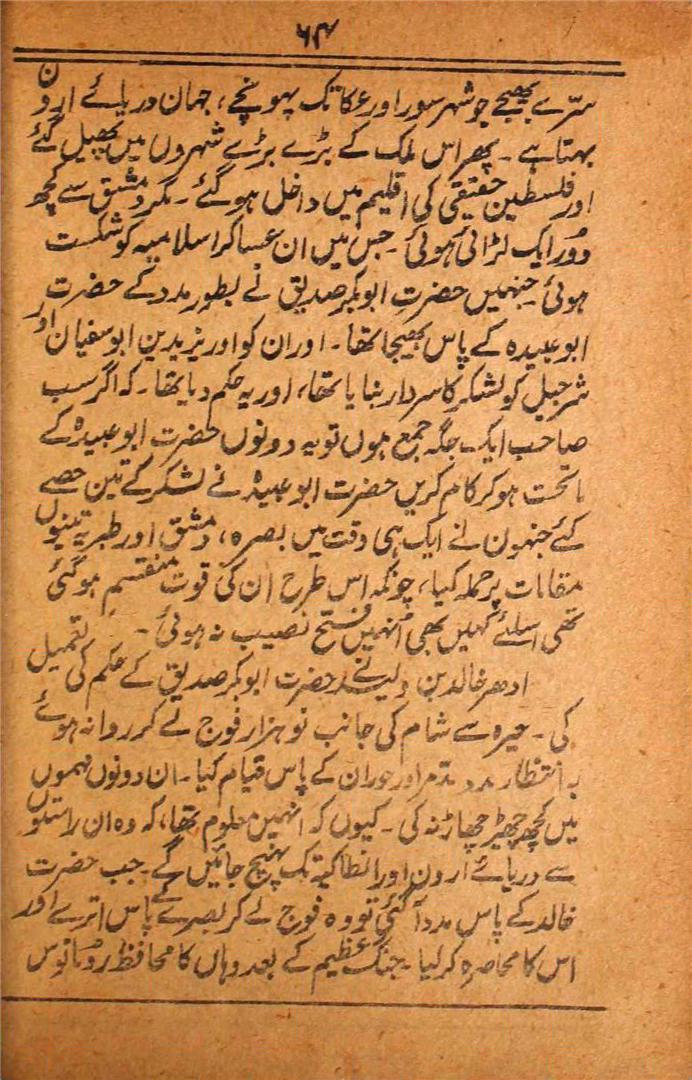 ۶۴
سرّے بھیجے جو شہر سور اور عکا تک پہونچے، جہان دریائے اردن
بہتا ہے۔ پھر اس ملک کے بڑے بڑے شہروں میں پھیل گئے
اور فلسطین حقیقی کی اقلیم میں داخل ہو گئے۔ مگر دمشق سے کچھ
دُور ایک لڑائی ہوئی۔ جس میں ان عساکر اسلامیہ کو شکست
ہوئی۔ جنہیں حضرتِ ابو بکر صدیق نے بطور مدد کے حضرت
ابو عبیدہ کے پاس بھیجا تھا۔ اور ان کو اور یزید بن ابو سفیان اور
شرجیل کو لشکر کا سردار بنایا تھا، اور یہ حکم دیا تھا۔ کہ اگر سب
صاحب ایک جگہ جمع ہوں تو یہ دونوں حضرت ابو عبیدہ کے
ماتحت ہو کر کام کریں حضرت ابو عبیدہ نے لشکر کے تین حصے
کئے جنہون نے ایک ہی وقت میں بصرہ، دمشق اور طبریہ تینوں
مقامات پر حملہ کیا، چونکہ اس طرح ان کی قوت منقسم ہو گئی
تھی اسلئے کہیں بھی اُنہیں فتح نصیب نہ ہوئی۔
ادھر خالد بن ولید نے حضرت ابو بکر صدیق کے حکم کی تعمیل
کی۔ حیرہ سے شام کی جانب نو ہزار فوج لے کر روانہ ہوئے
بہ انتظار مدد تدمر اور حوران کے پاس قیام کیا۔ ان دونوں مہموں
میں کچھ چھیڑ چھاڑ نہ کی۔ کیوں کہ انہیں معلوم تھا، کہ وہ ان راستوں
سے دریائے اردن اور انطاکیہ تک پہنچ جائیں گے۔ جب حضرت
خالد کے پاس مدد آ گئی تو وہ فوج لے کر بصرے کے پاس اترے اور
اس کا محاصرہ کر لیا۔ جنگ عظیم کے بعد وہاں کا محافظ رومانوس